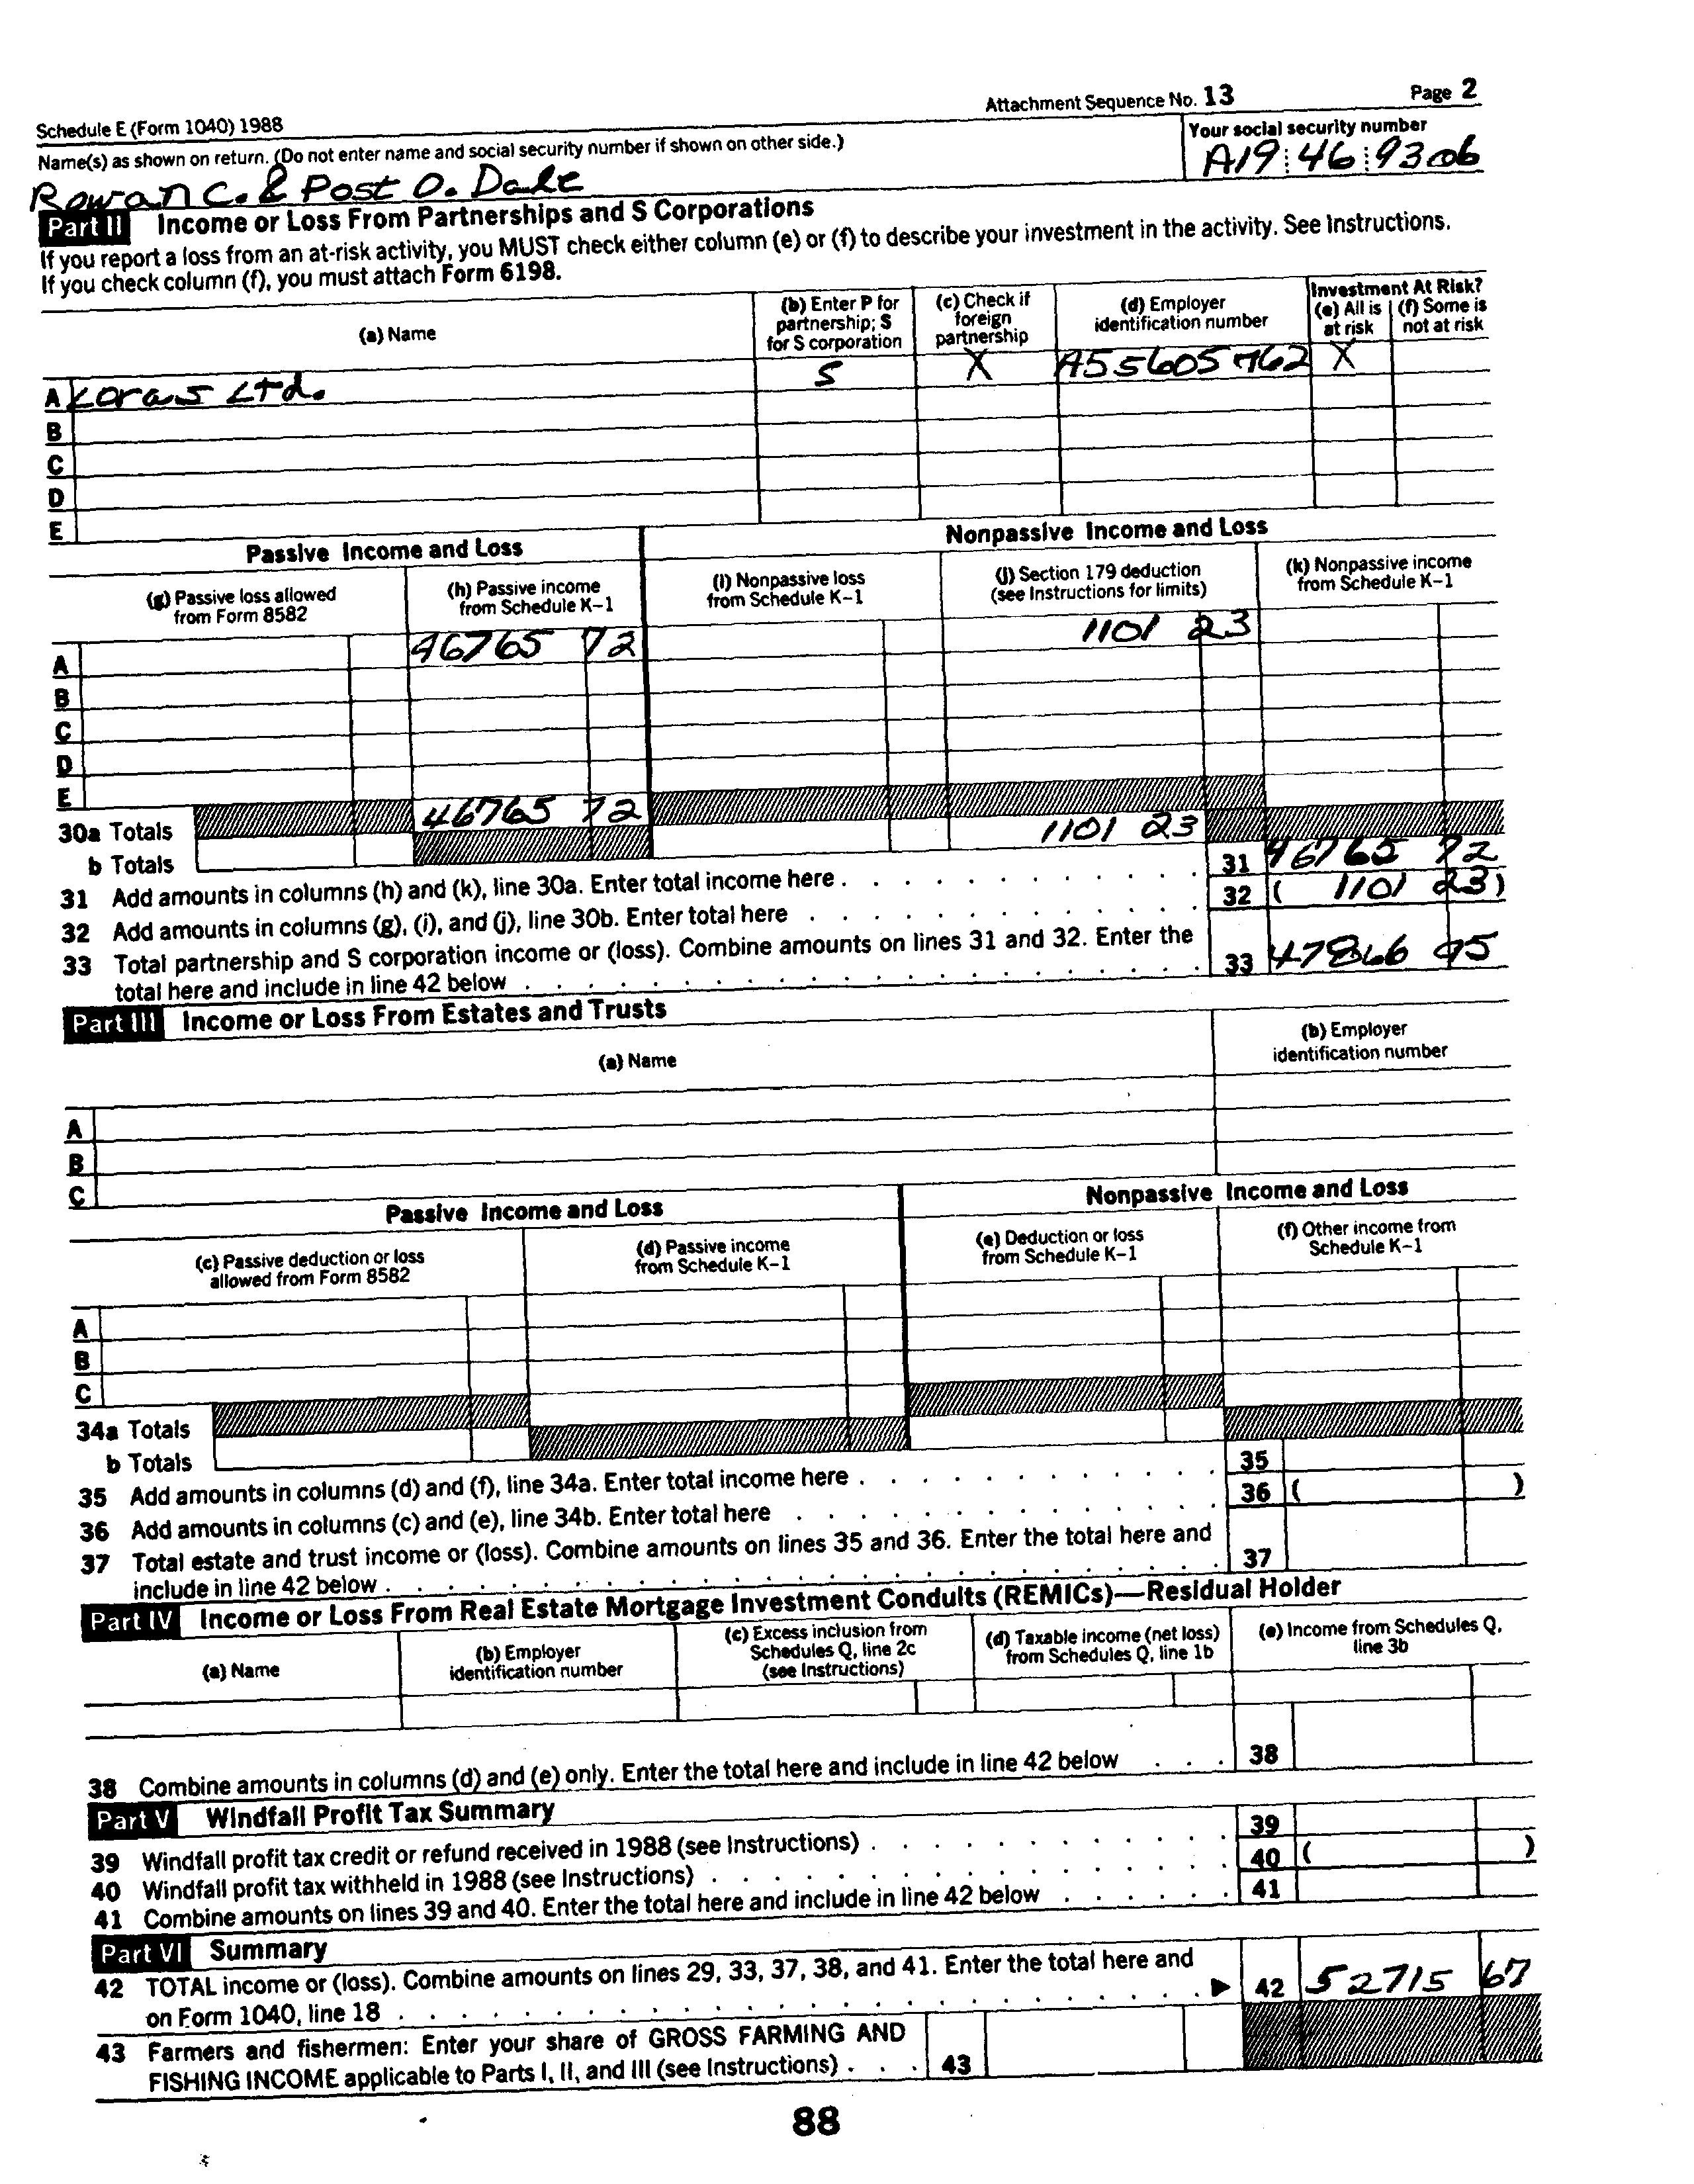 Schedule E (Form 1040) 1988 Attachment Sequence No. 13 Page 2
Name(s) as shown on return. (Do not enter name and social security number if shown on other side.) Your social security number
Rowan C. & Post O. Dale A19 46 9306
Part II Income or Loss From Partnerships and S Corporations
If you report a loss from an at-risk activity, you MUST check either column (e) or (f) to describe your investment in the activity. See Instructions.
If you check column (f), you must attach Form 6198.
(a) Name (b) Enter P for partnership; S for S corporation (c) Check if foreign partnership (d) Employer identification number Investment At Risk? (e) All is at risk (f) Some is not at risk
A Loras Ltd. S X A55605762 X
B
C
D
E
Passive Income and Loss Nonpassive Income and Loss
(g) Passive loss allowed from Form 8582 (h) Passive income from Schedule K-1 (i) Nonpassive loss from Schedule K-1 (j) Section 179 deduction (see Instructions for limits) (k) Nonpassive income from Schedule K-1
A 46765 72 1101 23
B
C
D
E
30a Totals 46765 72
b Totals 1101 23
31 Add amounts in columns (h) and (k), line 30a. Enter total income here 31 46765 72
32 Add amounts in columns (g), (i), and (j), line 30b. Enter total here 32 ( 1101 23)
33 Total partnership and S corporation income or (loss). Combine amounts on lines 31 and 32. Enter the
total here and include in line 42 below 33 47866 95
Part III Income or Loss From Estates and Trusts
(a) Name (b) Employer identification number
A
B
C
Passive Income and Loss Nonpassive Income and Loss
(c) Passive deduction or loss allowed from Form 8582 (d) Passive income from Schedule K-1 (e) Deduction or loss from Schedule K-1 (f) Other income from Schedule K-1
A
B
C
34a Totals
b Totals
35 Add amounts in columns (d) and (f), line 34a. Enter total income here 35
36 Add amounts in columns (c) and (e), line 34b. Enter total here 36 ( )
37 Total estate and trust income or (loss). Combine amounts on lines 35 and 36. Enter the total here and
include in line 42 below 37
Part IV Income or Loss From Real Estate Mortgage Investment Conduits (REMICs)—Residual Holder
(a) Name (b) Employer identification number (c) Excess inclusion from Schedules Q, line 2c (see Instructions) (d) Taxable income (net loss) from Schedules Q, line 1b (e) Income from Schedules Q, line 3b
38 Combine amounts in columns (d) and (e) only. Enter the total here and include in line 42 below 38
Part V Windfall Profit Tax Summary
39 Windfall profit tax credit or refund received in 1988 (see Instructions) 39
40 Windfall profit tax withheld in 1988 (see Instructions) 40 ( )
41 Combine amounts on lines 39 and 40. Enter the total here and include in line 42 below 41
Part VI Summary
42 TOTAL income or (loss). Combine amounts on lines 29, 33, 37, 38, and 41. Enter the total here and
on Form 1040, line 18 ▶ 42 52715 67
43 Farmers and fishermen: Enter your share of GROSS FARMING AND
FISHING INCOME applicable to Parts I, II, and III (see Instructions) 43
88